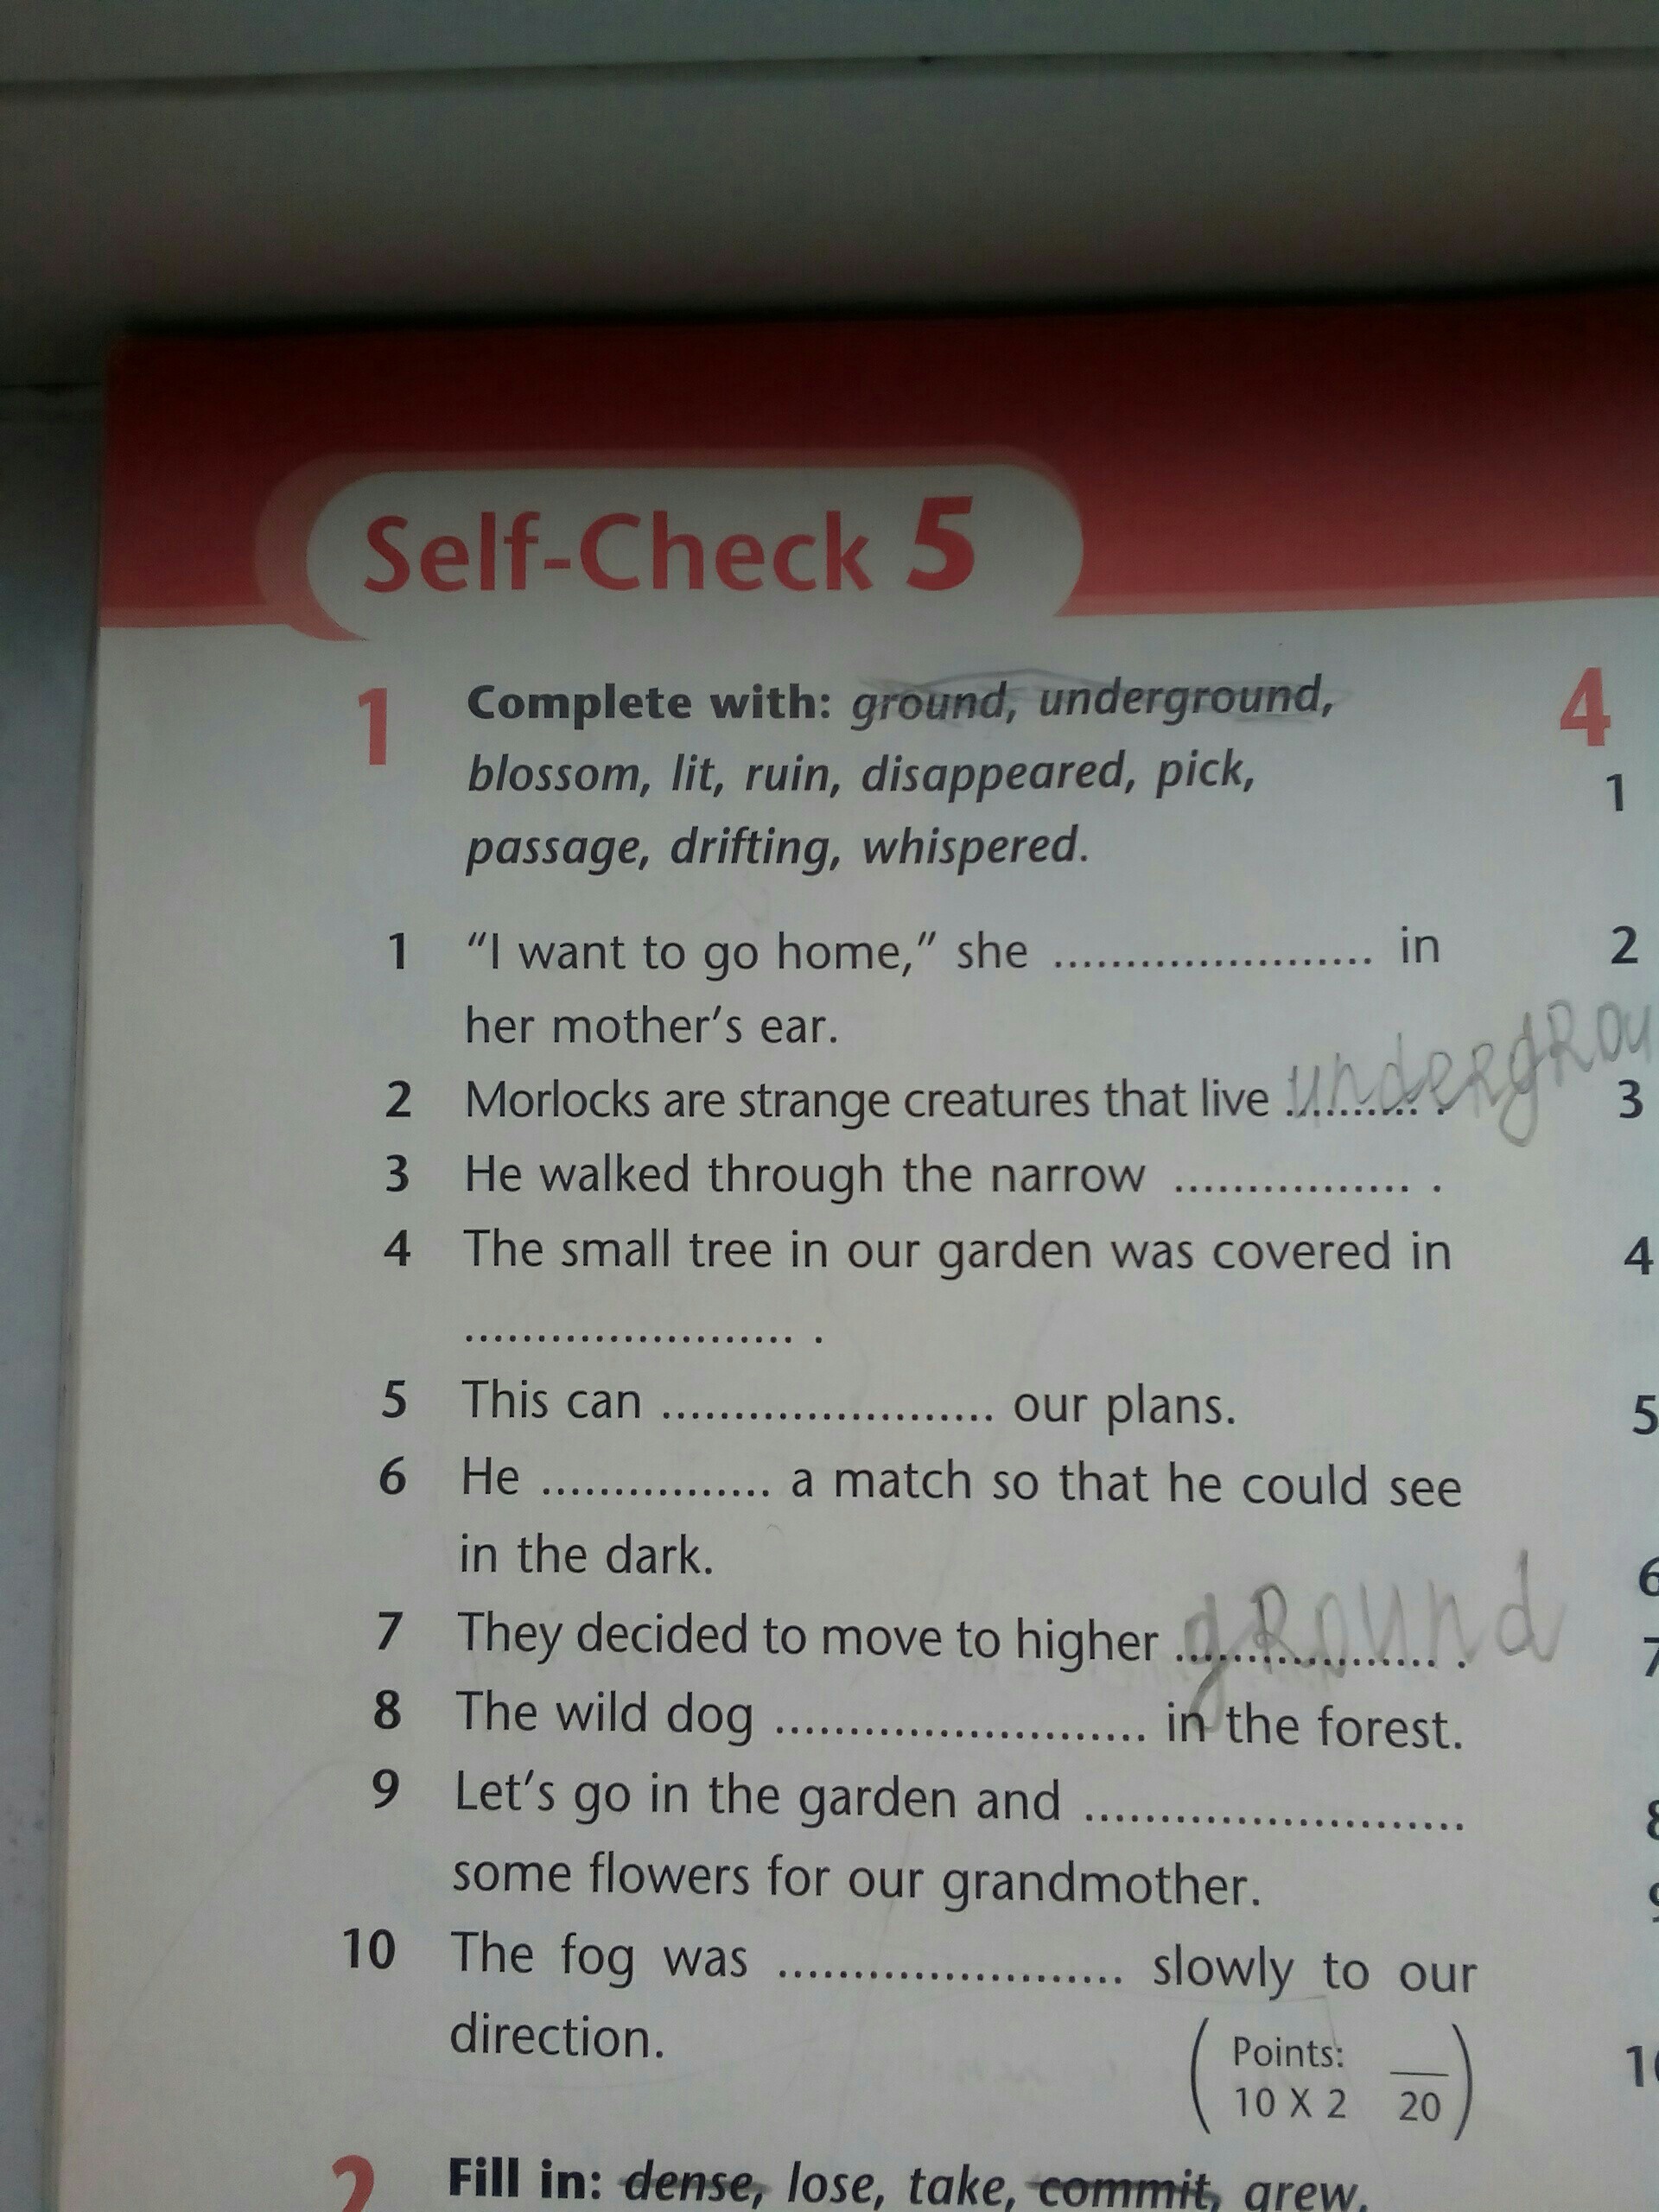 Self-Check 5
1 Complete with: ground, underground,
blossom, lit, ruin, disappeared, pick,
passage, drifting, whispered.
1 “I want to go home,” she ...................... in
her mother’s ear.
2 Morlocks are strange creatures that live .......... .
3 He walked through the narrow ................ .
4 The small tree in our garden was covered in
....................... .
5 This can ....................... our plans.
6 He ................ a match so that he could see
in the dark.
7 They decided to move to higher ground .................. .
8 The wild dog ......................... in the forest.
9 Let’s go in the garden and ..........................
some flowers for our grandmother.
10 The fog was ....................... slowly to our
direction.
Points:
10 X 2 20
2 Fill in: dense, lose, take, commit, grew,
4
1
2
3
4
5
6
7